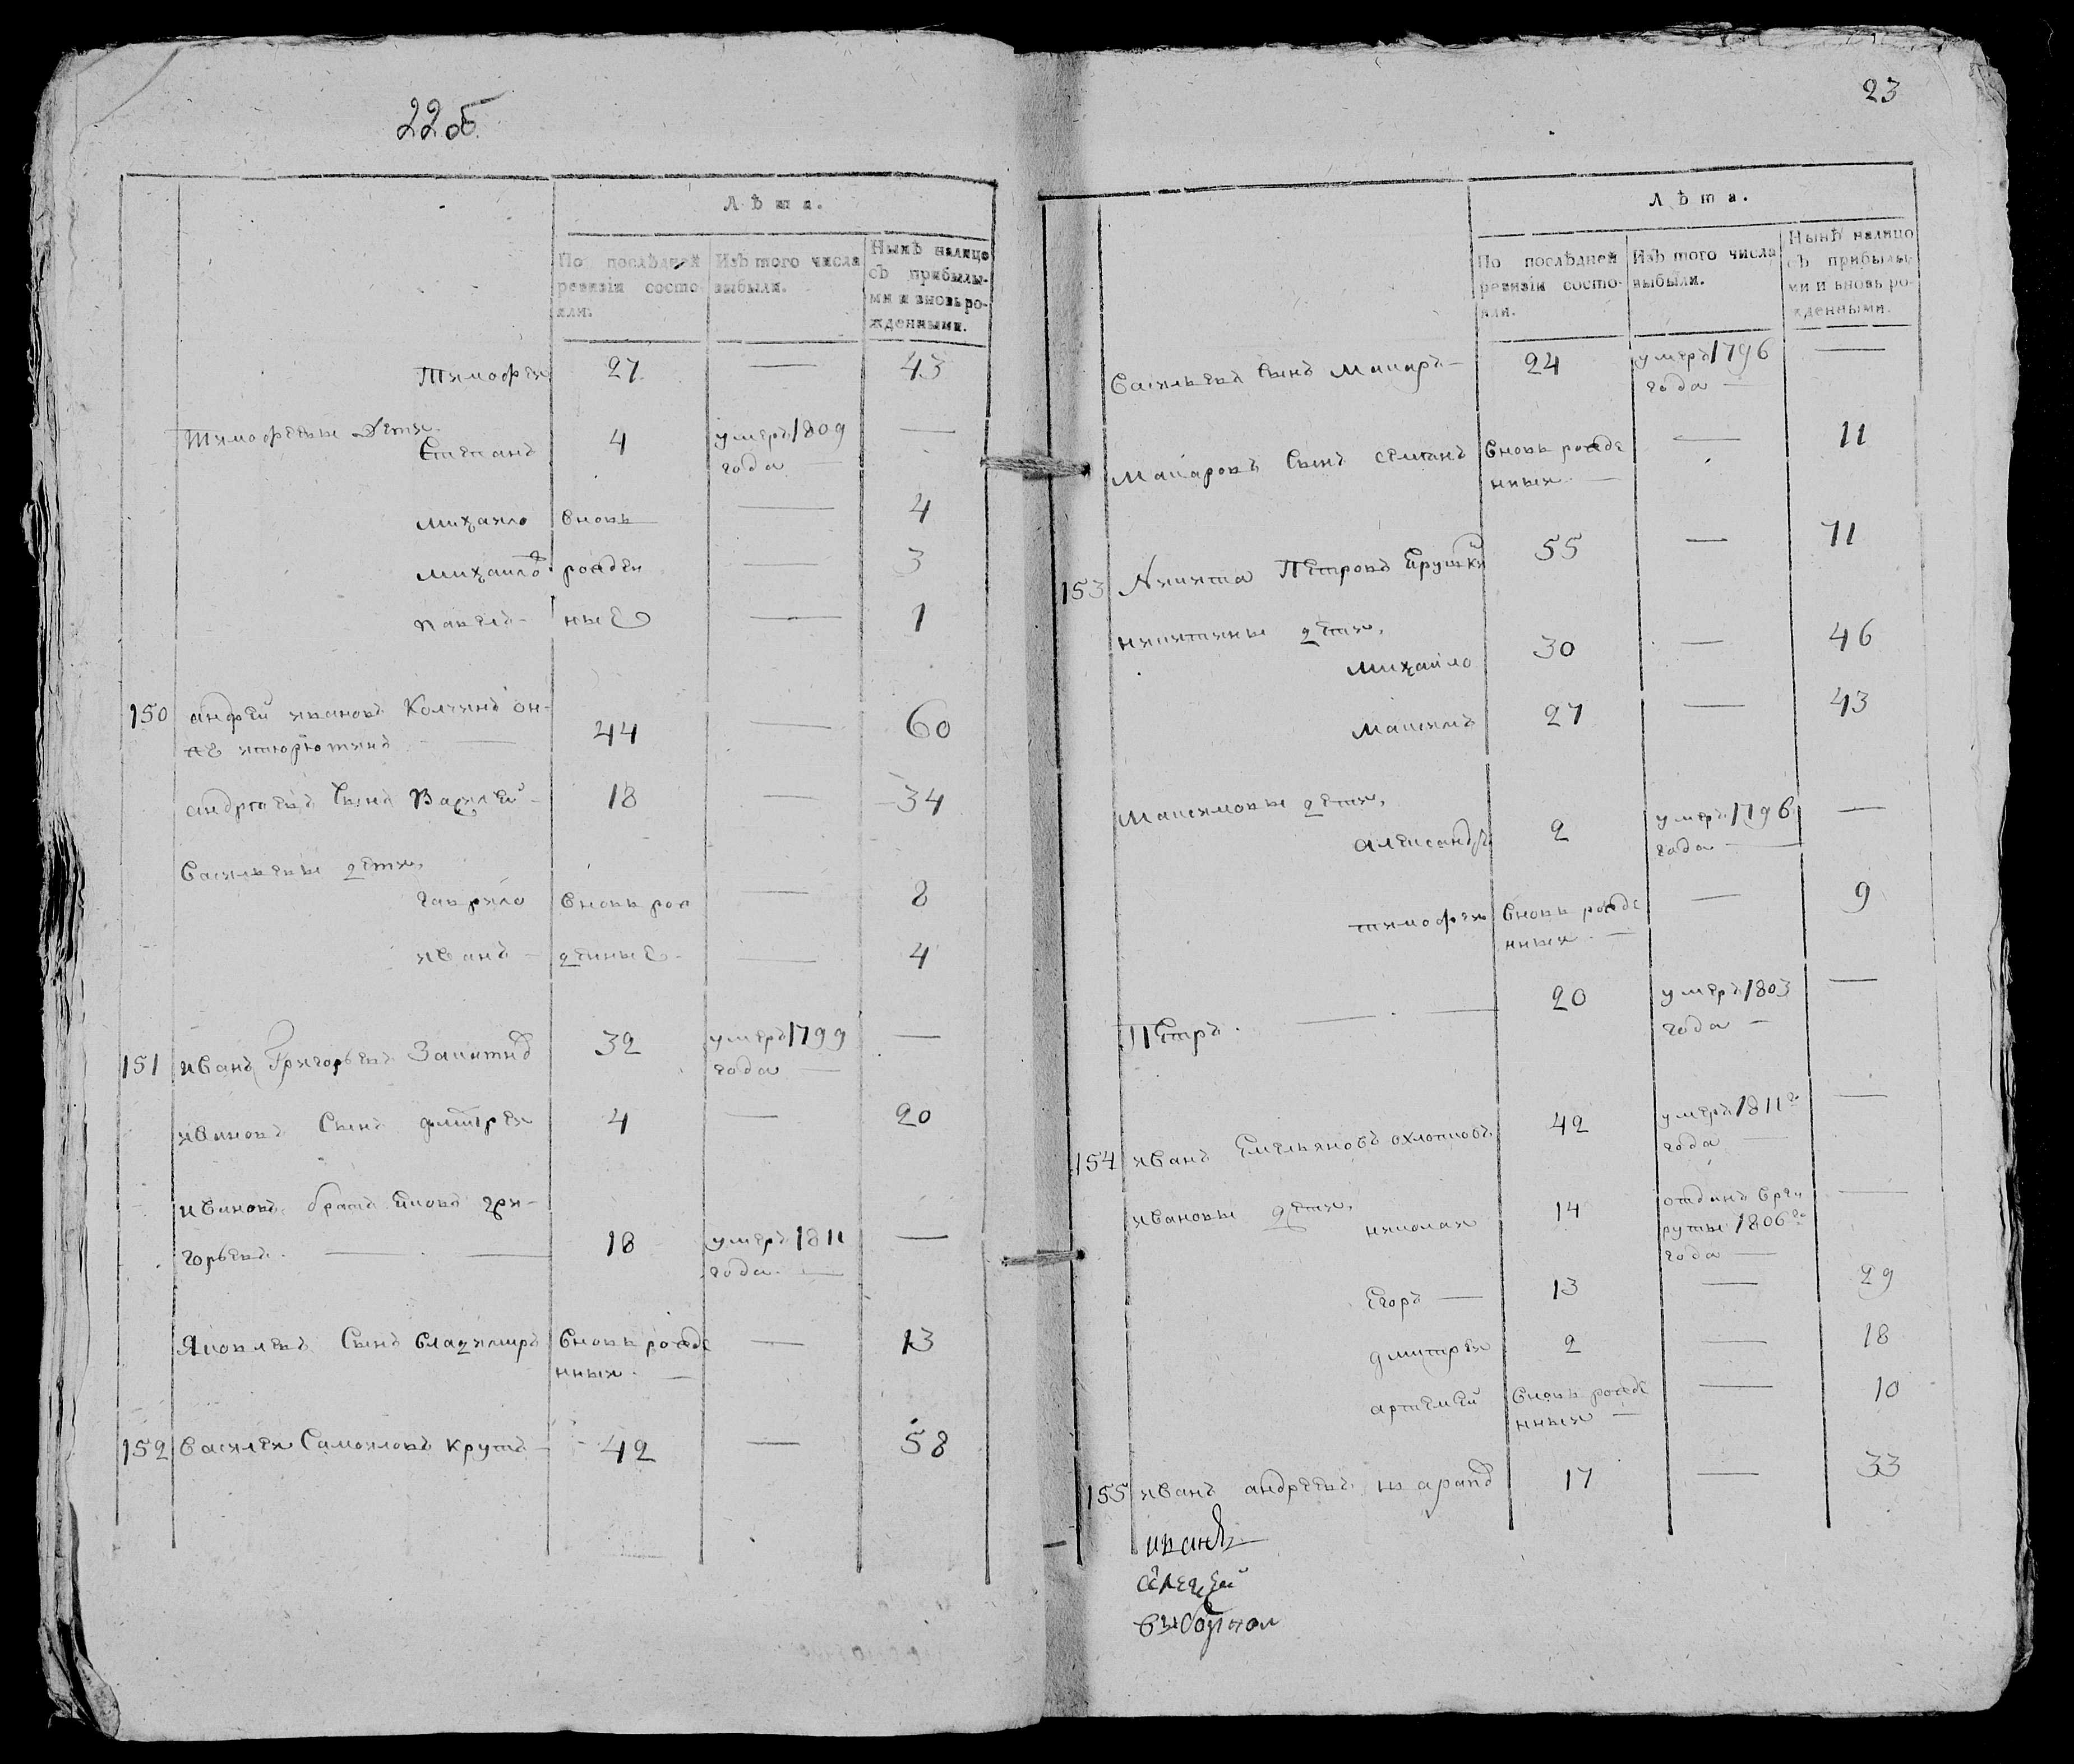 22об
Лѣта.
По послѣдней ревизіи состо-яли.
Изъ того числа выбыли.
Нынѣ налицо съ прибылы-ми и вновь ро-жденными.
Тимофеи 27 — 43
Тимофеевы дети
Степанъ 4 умеръ 1809 года —
михаило вновь — 4
михаило рожден — 3
павелъ ные — 1
150 андрей ивановъ Колчинъ он-
же 44 — 60
андреевъ сынъ Василей 18 — 34
Васильевы дети,
гаврило вновь рож — 8
иванъ денные — 4
151 иванъ Григорьевъ 32 умеръ 1799 года —
ивановъ сынъ дмитреи 4 — 20
ивановъ братъ яковъ гри-
горьевъ. 18 умеръ 1811 года —
Яковлевъ сынъ владимиръ вновь рожде нныи — 13
152 Василеи Самоиловъ крутъ 42 — 58
23
Лѣта.
По послѣдней ревизіи состо-яли.
Изъ того числа выбыли.
Нынѣ налицо съ прибылы-ми и вновь ро-жденными.
Васильевъ сынъ макаръ 24 умеръ 1796 года —
Макаровъ сынъ семенъ вновь рожде нныи — 11
153 Никита Петровъ 55 — 71
никитины дети,
михайло 30 — 46
максимъ 27 — 43
Максимовы дети,
александръ 2 умеръ 1796 года —
тимофеи вновь рожде нныи — 9
Петръ. 20 умеръ 1803 года —
154 иванъ Емельяновъ охлопковъ 42 умеръ 1811го года —
ивановы дети,
николаи 14 отданъ врек руты 1806го года —
Егоръ 13 — 29
дмитреи 2 — 18
артемей вновь рожде нныи — 10
155 иванъ андреевъ шарапъ 17 — 33
иванъ
алексей
выборнои